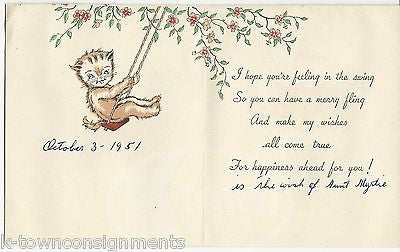 I hope you're feeling in the swing
So you can have a merry fling
And make my wishes
all come true
For happiness ahead for you!
is the wish of Aunt Myrtie
October 3 - 1951
k-townconsignments